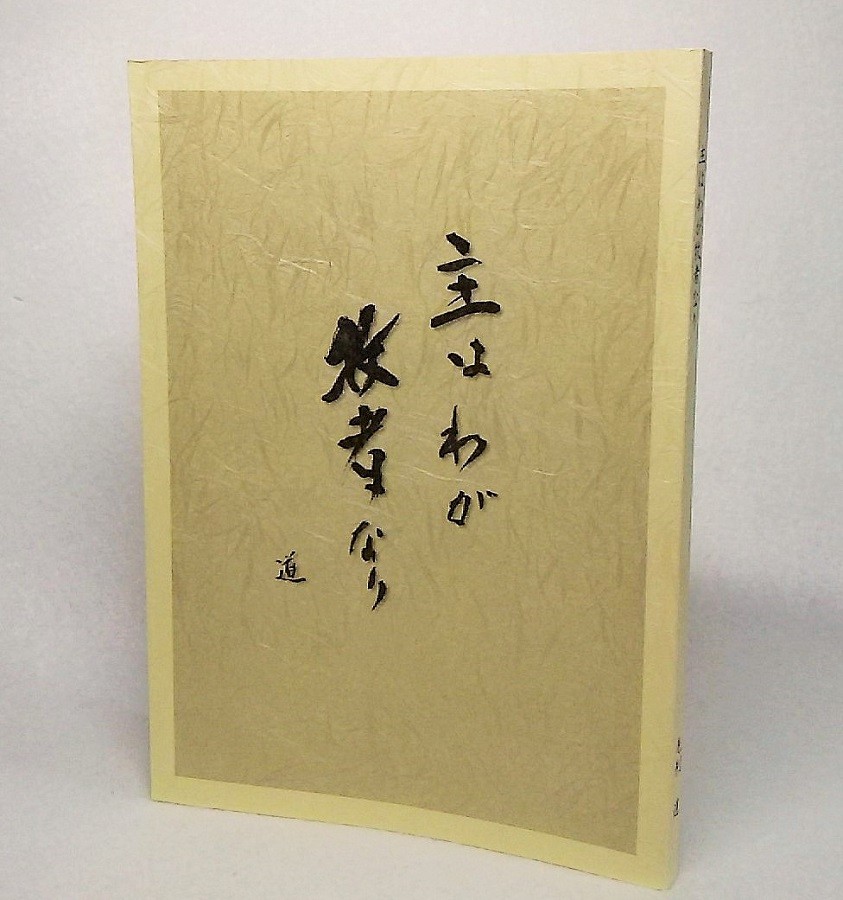 主はわが
牧者なり
道
主はわが牧者なり
道